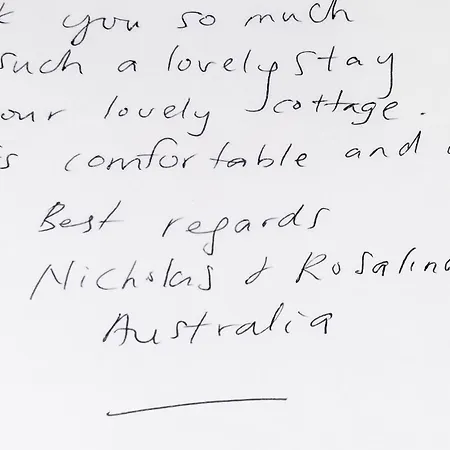 k you so much
such a lovely stay
our lovely cottage.
is comfortable and
Best regards
Nicholas & Rosalind
Australia